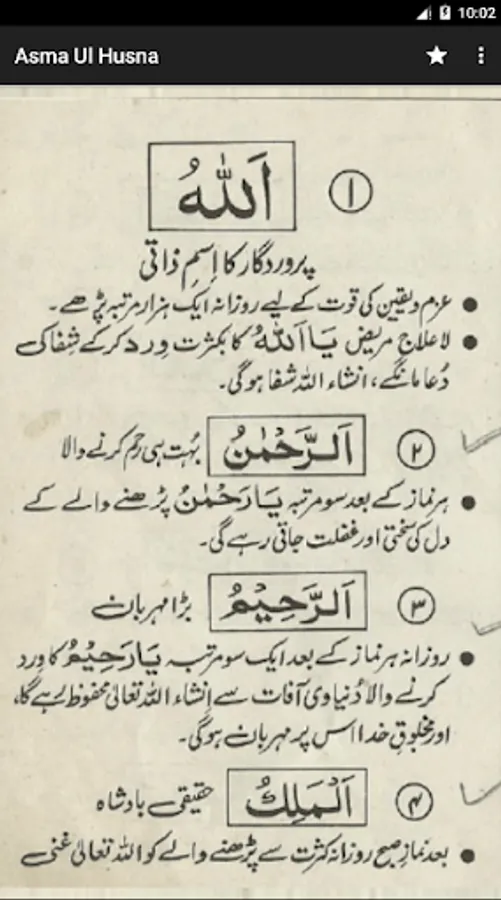 10:02
Asma Ul Husna
۱ اَللّٰهُ
پروردگار کا اِسمِ ذاتی
● عزم ویقین کی قوت کے لیے روزانہ ایک ہزار مرتبہ پڑھے۔
● لاعلاج مریض یَا اَللّٰهُ کا بکثرت وِرد کرکے شِفا کی
دُعا مانگے، انشاء اللہ شفا ہوگی۔
۲ اَلرَّحْمٰنُ بہُت ہی رحم کرنے والا
● ہر نماز کے بعد سو مرتبہ یَا رَحْمٰنُ پڑھنے والے کے
دل کی سختی اور غفلت جاتی رہے گی۔
۳ اَلرَّحِیْمُ بڑا مہربان
● روزانہ ہر نماز کے بعد ایک سو مرتبہ یَا رَحِیْمُ کا وِرد
کرنے والا دُنیاوی آفات سے انشاء اللہ تعالیٰ محفوظ رہے گا،
اور مخلوقِ خدا اس پر مہربان ہوگی۔
۴ اَلْمَلِكُ حقیقی بادشاہ
● بعد نمازِ صبح روزانہ کثرت سے پڑھنے والے کو اللہ تعالیٰ غنی